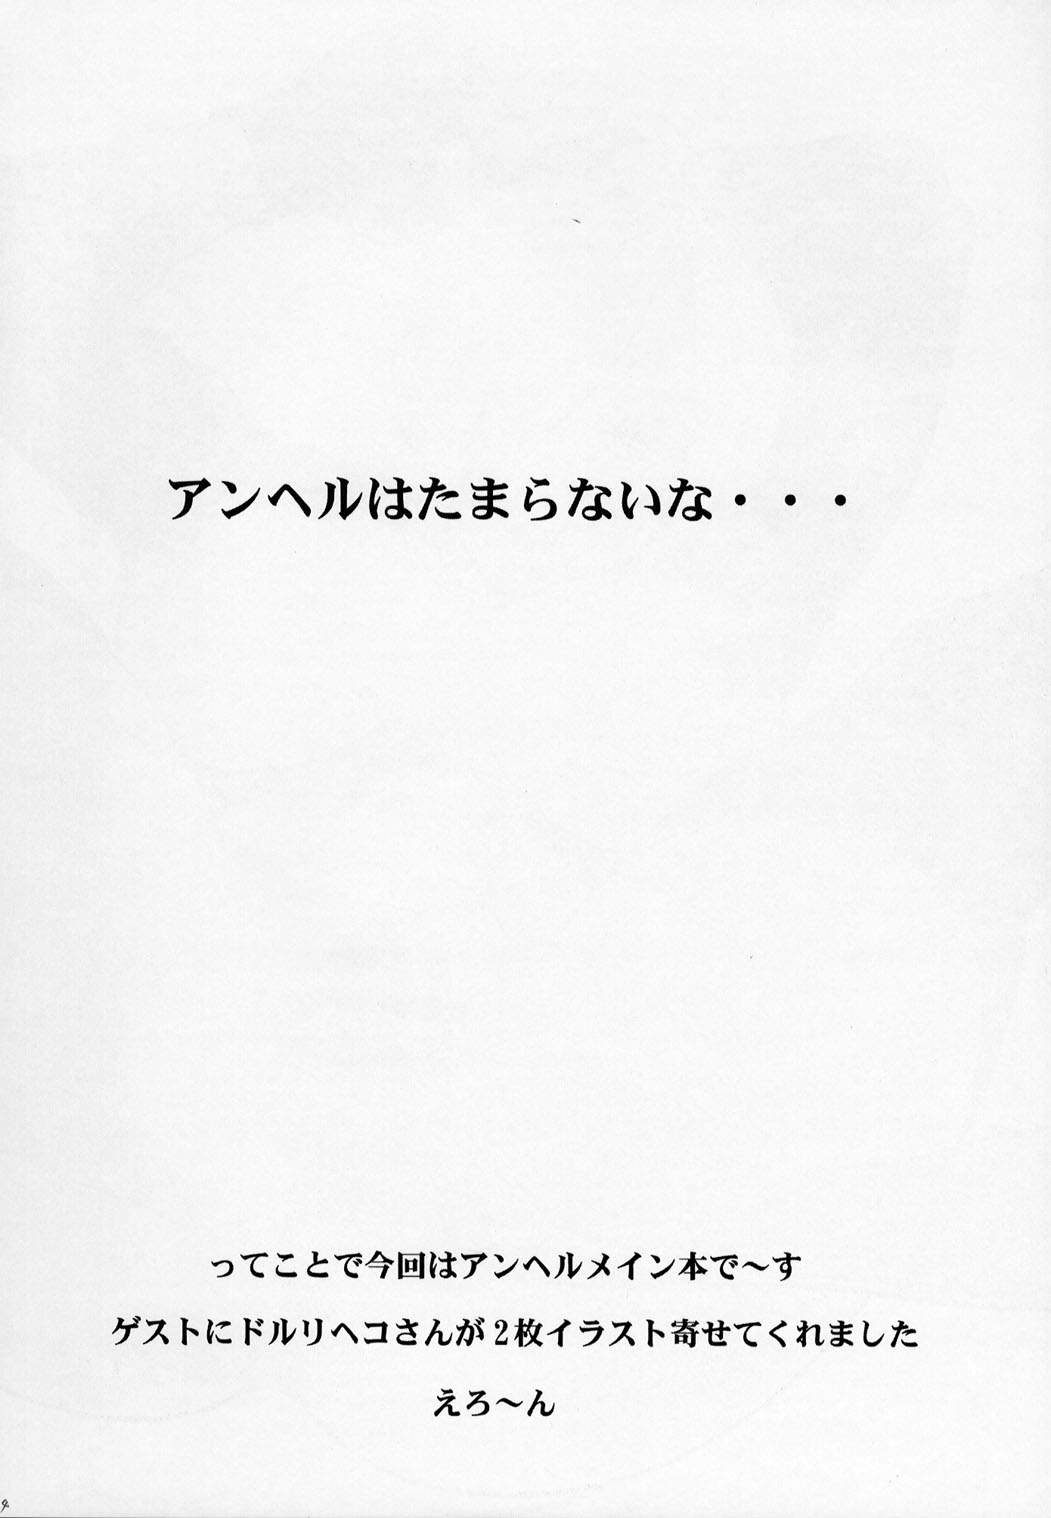 アンヘルはたまらないな・・・
ってことで今回はアンヘルメイン本で～す
ゲストにドルリヘコさんが2枚イラスト寄せてくれました
えろ～ん